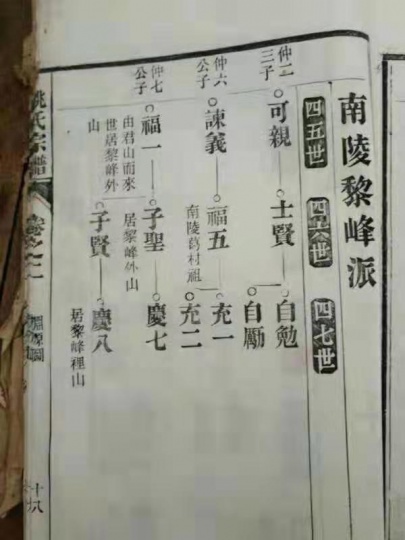 南陵黎峰派
四五世
四六世
四七世
仲二
三子
可親
士賢
自勉
自勵
仲六
公子
諫義
福五
南陵葛村祖
充一
充二
仲七
公子
福一
由君山而來
世居黎峰外
山
子聖
居黎峰外山
慶七
子賢
慶八
居黎峰裡山
姚氏宗譜
十八